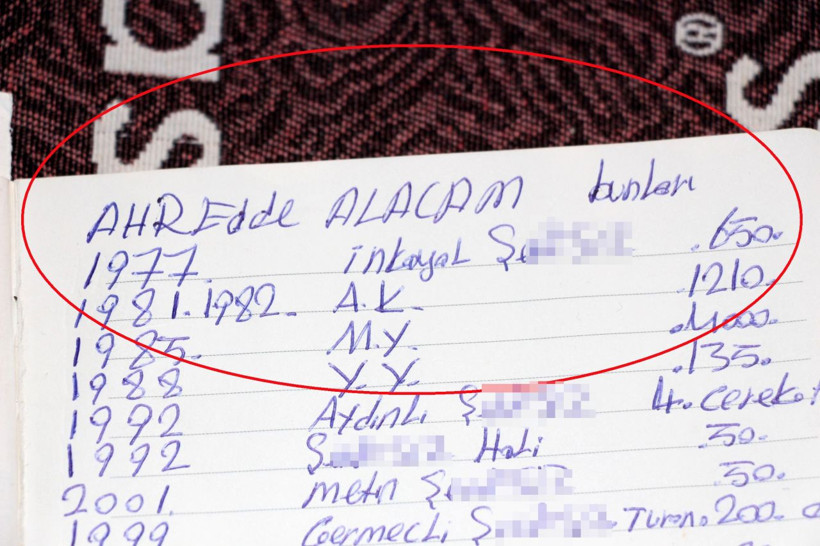 ®
AHREdde ALACAM bunları
1977. inkayal Şe .650.
1981.1982. A.K. .1210.
1985. M.Y. .4000.
1988 Y.Y. .135.
1992 Aydınlı Ş 4. Cerek
1992 Ş Hali 50.
2001. metin Ş 50.
1999 Germeçli Ş Turan. 200.